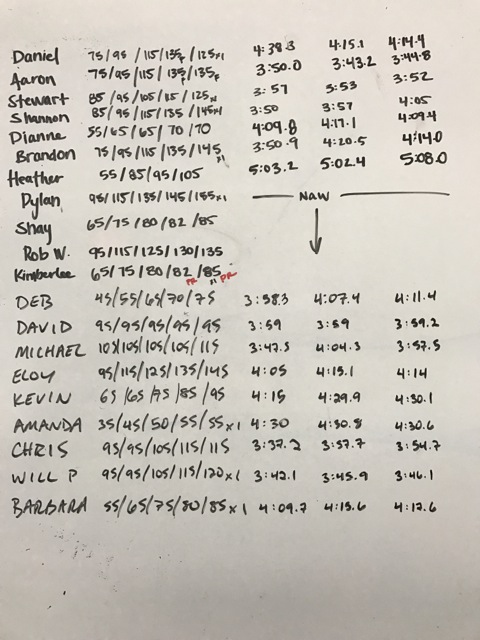 Daniel 75/95/115/135F/125x1 4:38.3 4:15.1 4:14.4
Aaron 75/95/115/135F/135F 3:50.0 3:43.2 3:44.8
Stewart 85/95/105/115/125x1 3:57 3:53 3:52
Shannon 85/95/115/135/145x1 3:50 3:57 4:05
Dianne 55/65/65/70/70 4:09.8 4:17.1 4:09.4
Brandon 75/95/115/135/145x1 3:50.9 4:20.5 4:14.0
Heather 55/85/95/105 5:03.2 5:02.4 5:08.0
Dylan 95/115/135/145/155x1 NAW
Shay 65/75/80/82/85
Rob W. 95/115/125/130/135
Kimberlee 65/75/80/82/85
PR x1 PR
DEB 45/55/65/70/75 3:58.3 4:07.4 4:11.4
DAVID 95/95/95/95/95 3:59 3:59 3:59.2
MICHAEL 105/105/105/105/115 3:47.5 4:04.3 3:57.5
ELOY 95/115/125/135/145 4:05 4:15.1 4:14
KEVIN 65/65/75/85/95 4:15 4:29.9 4:30.1
AMANDA 35/45/50/55/55x1 4:30 4:30.8 4:30.6
CHRIS 95/95/105/115/115 3:37.2 3:57.7 3:54.7
WILL P 95/95/105/115/120x1 3:42.1 3:45.9 3:46.1
BARBARA 55/65/75/80/85x1 4:09.7 4:15.6 4:17.6